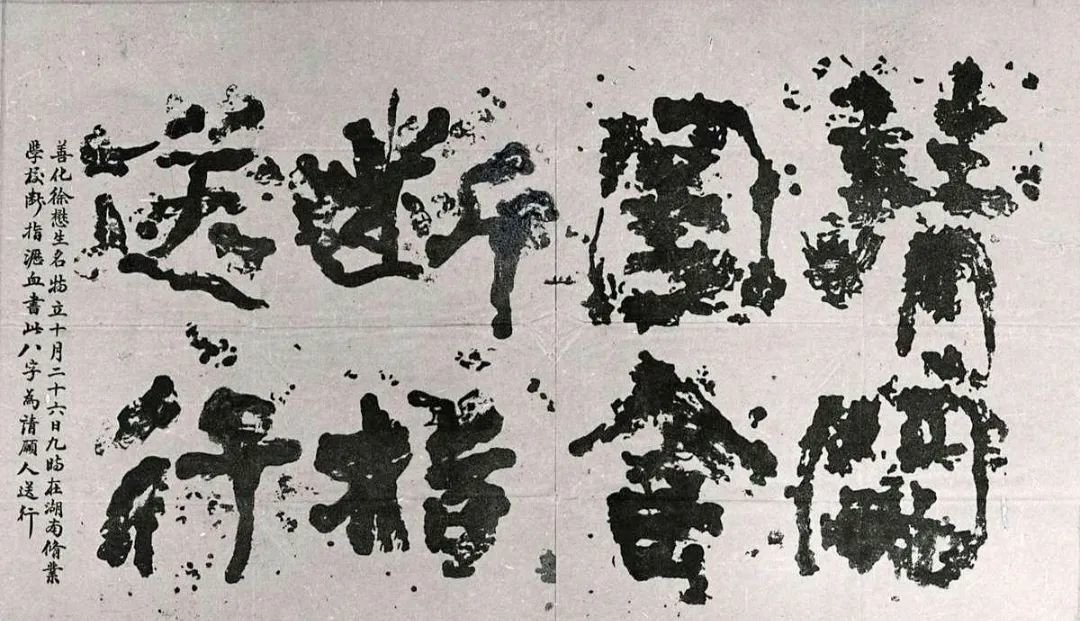 請開
國會
断指
送行
善化徐懋生名特立十月二十六日九時在湖南脩業
學校断指瀝血書此八字為請願人送行